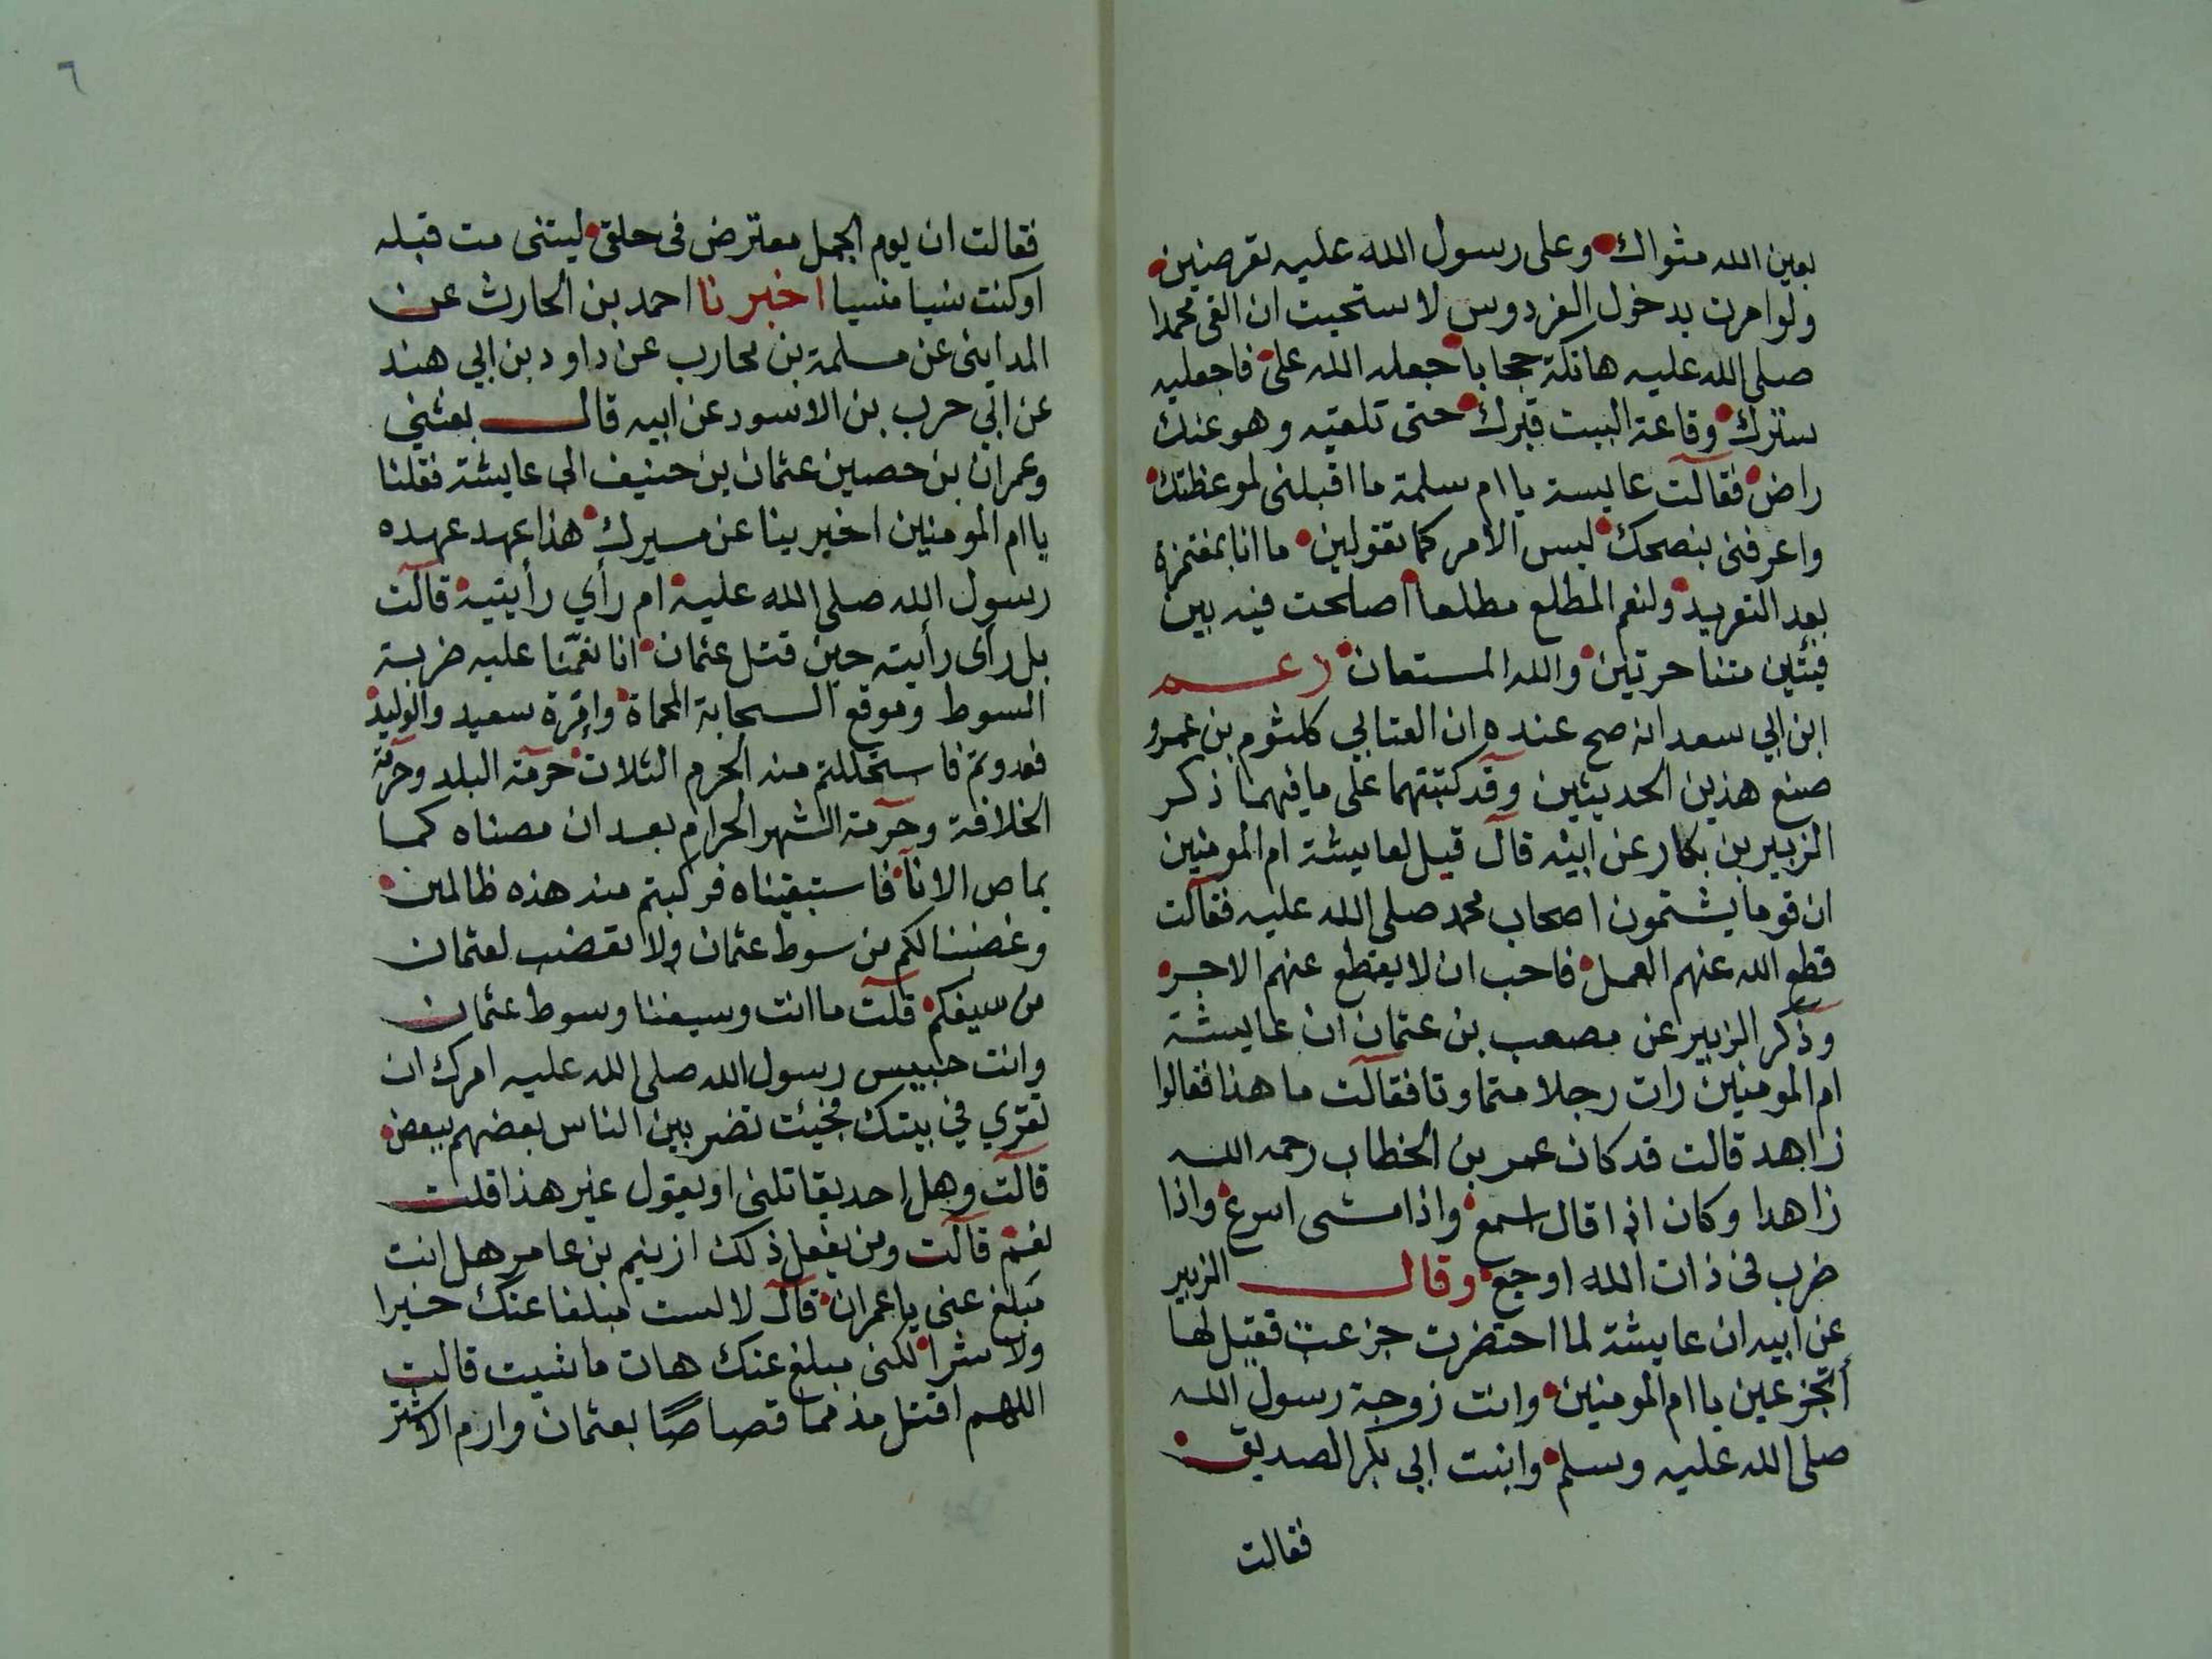 بعين الله مثواك وعلى رسول الله عليه تعرضين
ولو امرت بدخول الفردوس لاستحيت ان القى محمدا
صلى الله عليه هاتكة حجابا جعله الله على فاجعليه
سترك وقاعة البيت قبرك حتى تلقيه وهو عنك
راض فقالت عايسة يا ام سلمة ما اقبلنى لموعظتك
واعرفنى بنصحك ليس الامر كما تقولين ما انا بمغتمزة
بعد التعريد ولنعم المطلع مطلعا اصلحت فيه بين
فئتين متناحرتين والله المستعان زعم
ابن ابي سعد انه صح عنده ان العتابي كلثوم بن عمرو
صنع هذين الحديثين وقد كتبتهما على ما فيهما ذكر
الزبير بن بكار عن ابيه قال قيل لعايشة ام المومنين
ان قوما يشتمون اصحاب محمد صلى الله عليه فقالت
قطع الله عنهم العمل فاحب ان لا يقطع عنهم الاجر
وذكر الزبير عن مصعب بن عثمان ان عايشة
ام المومنين رات رجلا متماوتا فقالت ما هذا فقالوا
زاهد قالت قد كان عمر بن الخطاب رحمه الله
زاهدا وكان اذا قال اسمع واذا مشى اسرع واذا
ضرب فى ذات الله اوجع وقال الزبير
عن ابيه ان عايشة لما احتضرت جزعت فقيل لها
أتجزعين يا ام المومنين وانت زوجة رسول الله
صلى الله عليه وسلم وابنت ابي بكر الصديق
فقالت
٦
فقالت ان يوم الجمل معترض فى حلقى ليتنى مت قبله
او كنت نسيا منسيا اخبرنا احمد بن الحارث عن
المداينى عن مسلمة بن محارب عن داود بن ابي هند
عن ابي حرب بن الاسود عن ابيه قال بعثني
وعمران بن حصين عثمان بن حنيف الى عايشة فقلنا
يا ام المومنين اخبرينا عن مسيرك هذا عهد عهده
رسول الله صلى الله عليه ام رأي رأيتيه قالت
بل رأى رأيته حين قتل عثمان انا نقمنا عليه ضربة
السوط وموقع السحابة المحماة وإمرة سعيد والوليد
فعدوتم فاستحللتم منه الحرم الثلاث حرمة البلد وحرمة
الخلافة وحرمة الشهر الحرام بعد ان مصناه كما
يماص الانآ فاستبقيناه فركبتم منه هذه ظالمين
وغضبنا لكم من سوط عثمان ولا نغضب لعثمان
من سيفكم قلت ما انت وسيفنا وسوط عثمان
وانت حبيس رسول الله صلى الله عليه امرك ان
تقري في بيتك فجئت تضربين الناس بعضهم ببعض
قالت وهل احد يقاتلنى او يقول غير هذا قلت
نعم قالت ومن يفعل ذلك ازنيم بن عامر هل انت
مبلغ عنى يا عمران قال لا لست مبلغا عنك خيرا
ولا شرا لكنى مبلغ عنك هات ما شيت قالت
اللهم اقتل مذمما قصاصًا بعثمان وارم الاشتر